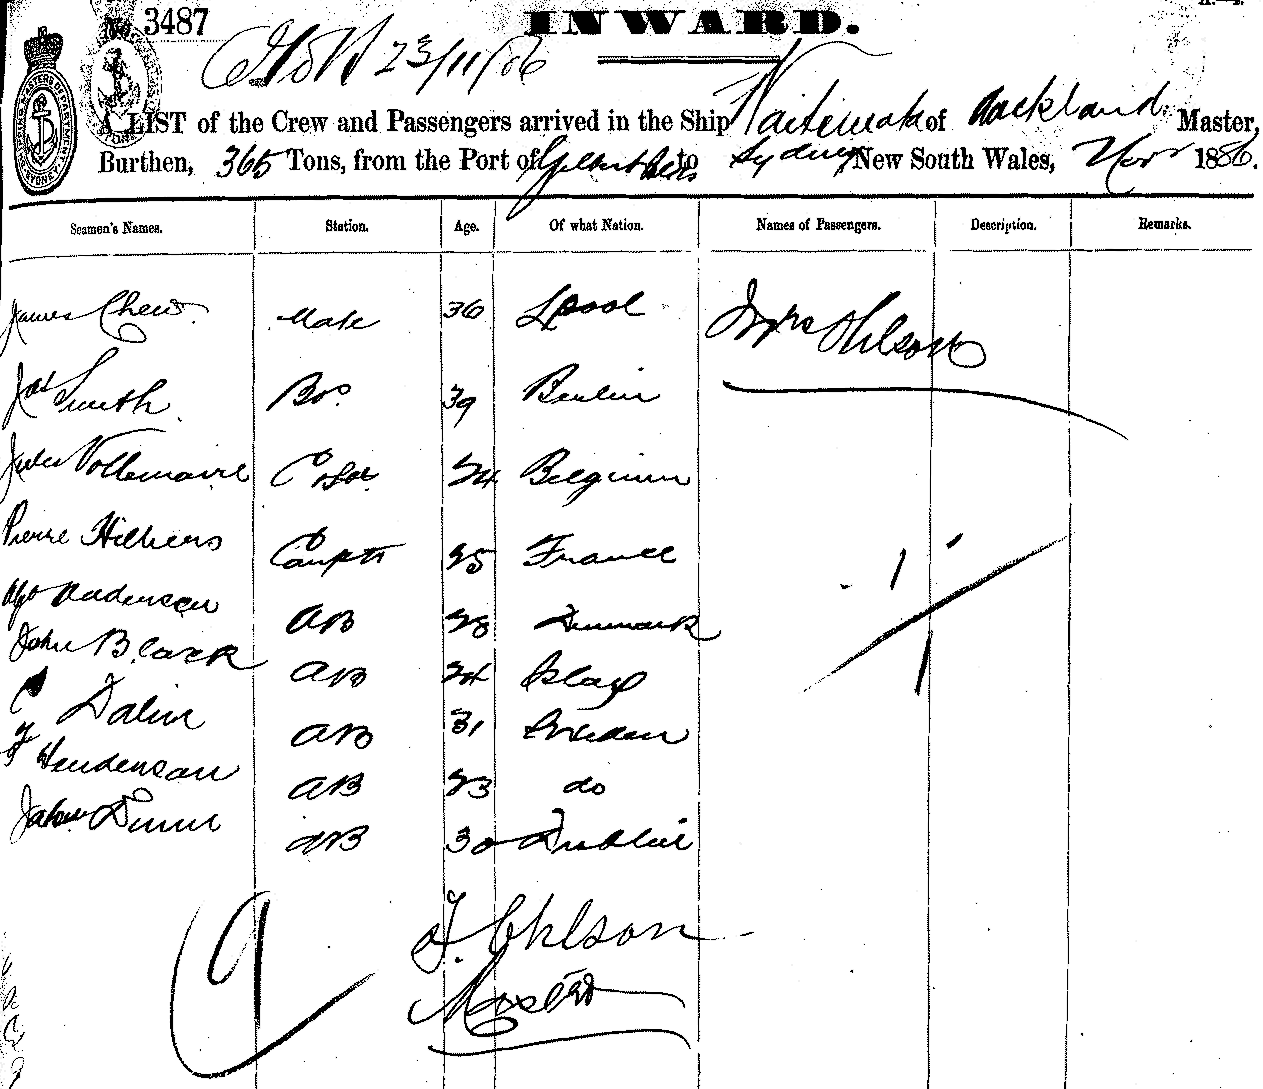 No. 3487
INWARD.
23/11/86
A LIST of the Crew and Passengers arrived in the Ship Waitemata of Auckland, Master,
Burthen, 365 Tons, from the Port of Gilbert to Sydney New South Wales, Novr 1886.
Seamen's Names. Station. Age. Of what Nation. Names of Passengers. Description. Remarks.
James Chew. Mate 36 L'pool Ohlson
Jas Smith. Bos. 39 Berlin
Jules Vollemaire 24 Belgium
Pierre 25 France
Andersen AB 28 Denmark
John Black AB 24 Islay
C Dalin AB 31 Sweden
F Hendenson AB 23 do
AB 30 Dublin
9
Ohlson
Master
1
1